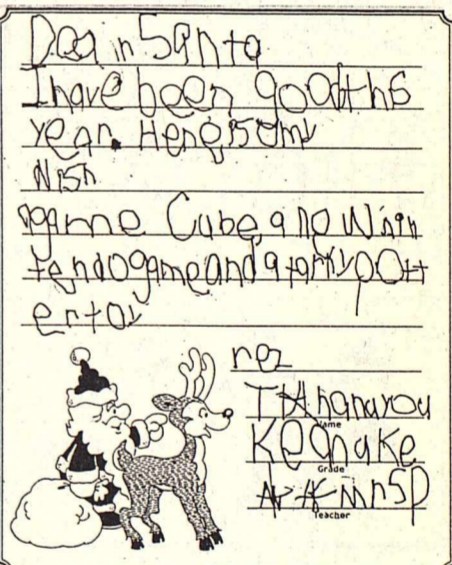 Dear in Santa
I have been good this
year. Here is my
Wish
a game Cube, a Nin
tendo game and a Harry pott
er toy
Thank you
Name
Keanake
Grade
Teacher